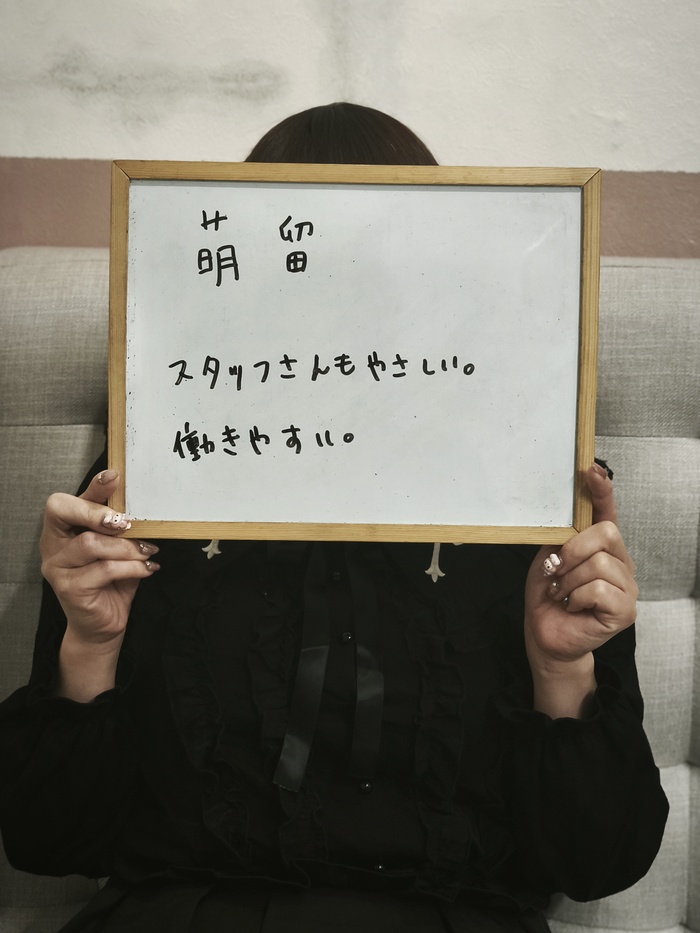 萌 留
スタッフさんもやさしい。
働きやすい。